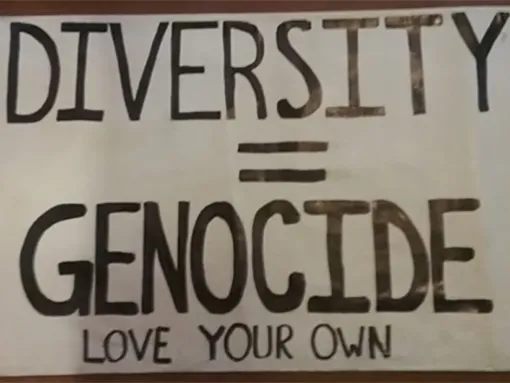 DIVERSITY
=
GENOCIDE
LOVE YOUR OWN